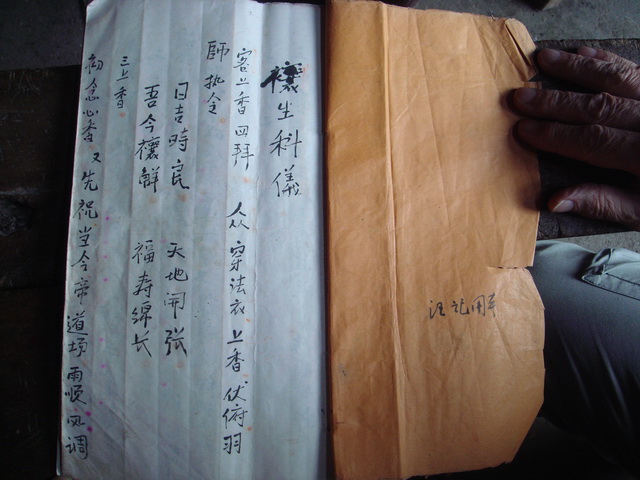 禳生科儀
客上香四拜 众穿法衣上香伏俯羽
師执令
日吉時良 天地開张
吾今禳解 福寿綿长
三上香
心香又先祝当今帝道场雨順风调